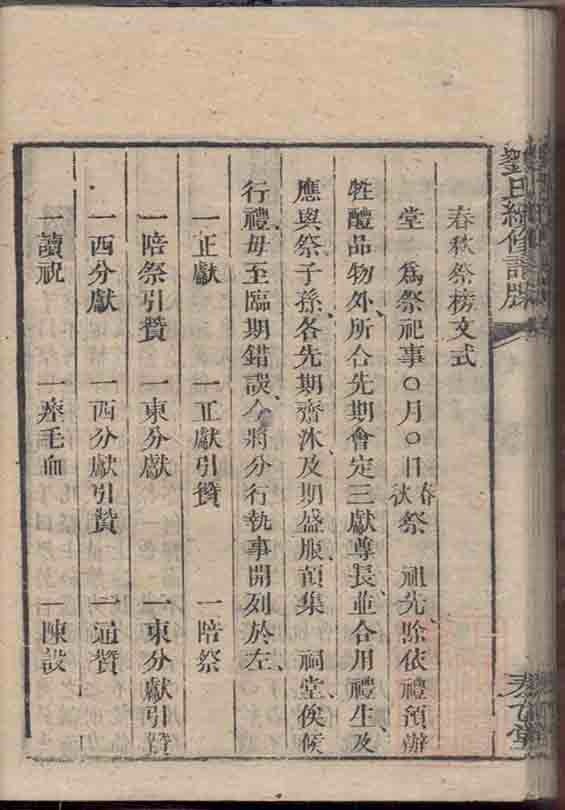 劉氏續修譜牒
春秋祭榜文式
堂 爲祭祀事〇月〇日春秋祭 祖先除依禮預辦
牲醴品物外、所合先期會定三獻尊長、並合用禮生、及
應與祭子孫、各先期齊沐、及期盛服、前集 祠堂、俟候
行禮、毋至臨期錯誤、今將分行執事開列於左、
一正獻 一正獻引贊 一陪祭
一陪祭引贊 一東分獻 一東分獻引贊
一西分獻 一西分獻引贊 一通贊
一讀祝 一瘞毛血 一陳設